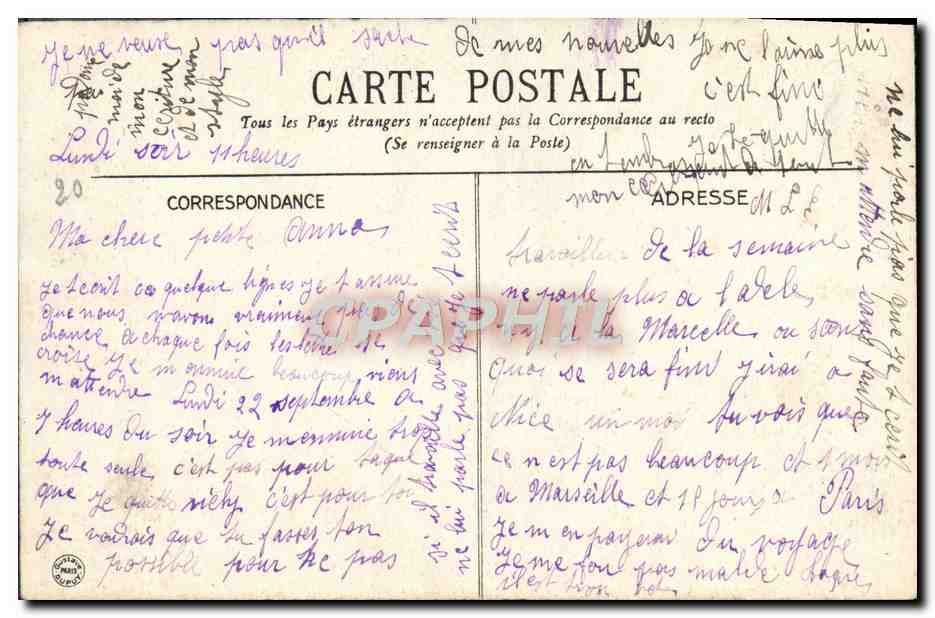 Je ne veux pas qu'il sache de mes nouvelles Je ne l'aime plus
c'est fini
pardonne
moi de
mon
ecriture
et de mon
style
CARTE POSTALE
Tous les Pays étrangers n'acceptent pas la Correspondance au recto
(Se renseigner à la Poste)
Lundi soir 11 heures
Je te quitte
en t'embrassant de tout
mon
20
CORRESPONDANCE
ADRESSE
Ma chere petite Anna
Je t'ecrit ces quelque lignes Je t'assure
que nous n'avons vraiment pas de
chance a chaque fois les lettre se
croise Je m'ennuie beaucoup viens
m'attendre Lundi 22 septembre a
7 heures du soir Je m'ennuie trop
toute seule c'est pas pour
que Je quitte vichy c'est pour toi
Je voudrais que tu fasses ton
possible pour ne pas
si il travaille avec
ne lui parle pas que Je t'ecrit
travailler de la semaine
ne parle plus a l'adele
a la Marcelle ou sans
quoi se sera fini J'irai a
Nice un moi tu vois que
ce n'est pas beaucoup et 1 mois
a Marseille et 15 jours a Paris
Je m'en payerai du voyage
Je me fou pas mal de
il est
ne lui parle pas que Je t'ecrit
m'attendre sans faute
GUSTAVE
PARIS
DUPUY
CPAPHIL